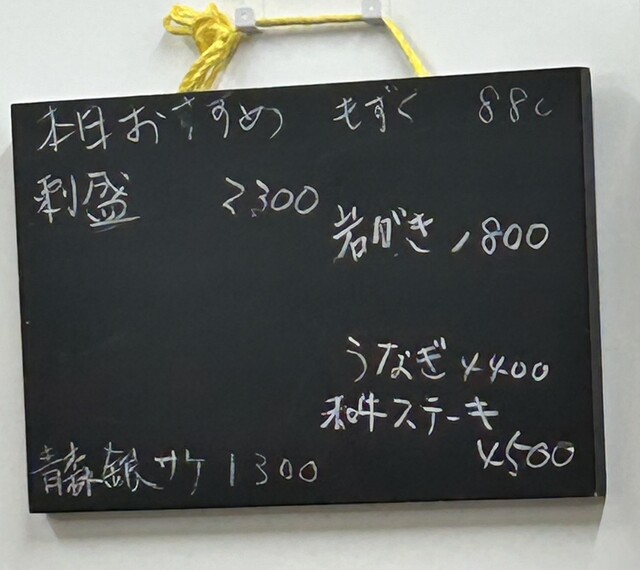 本日おすすめ
刺盛 2300
青森銀サケ 1300
もずく 880
岩がき 1800
うなぎ 4400
和牛ステーキ
4500